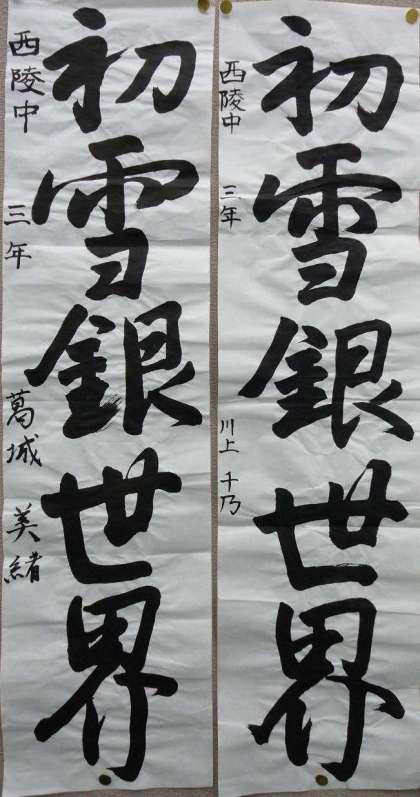 初雪銀世界
西陵中 三年 川上 千乃
初雪銀世界
西陵中 三年 葛城 美緒